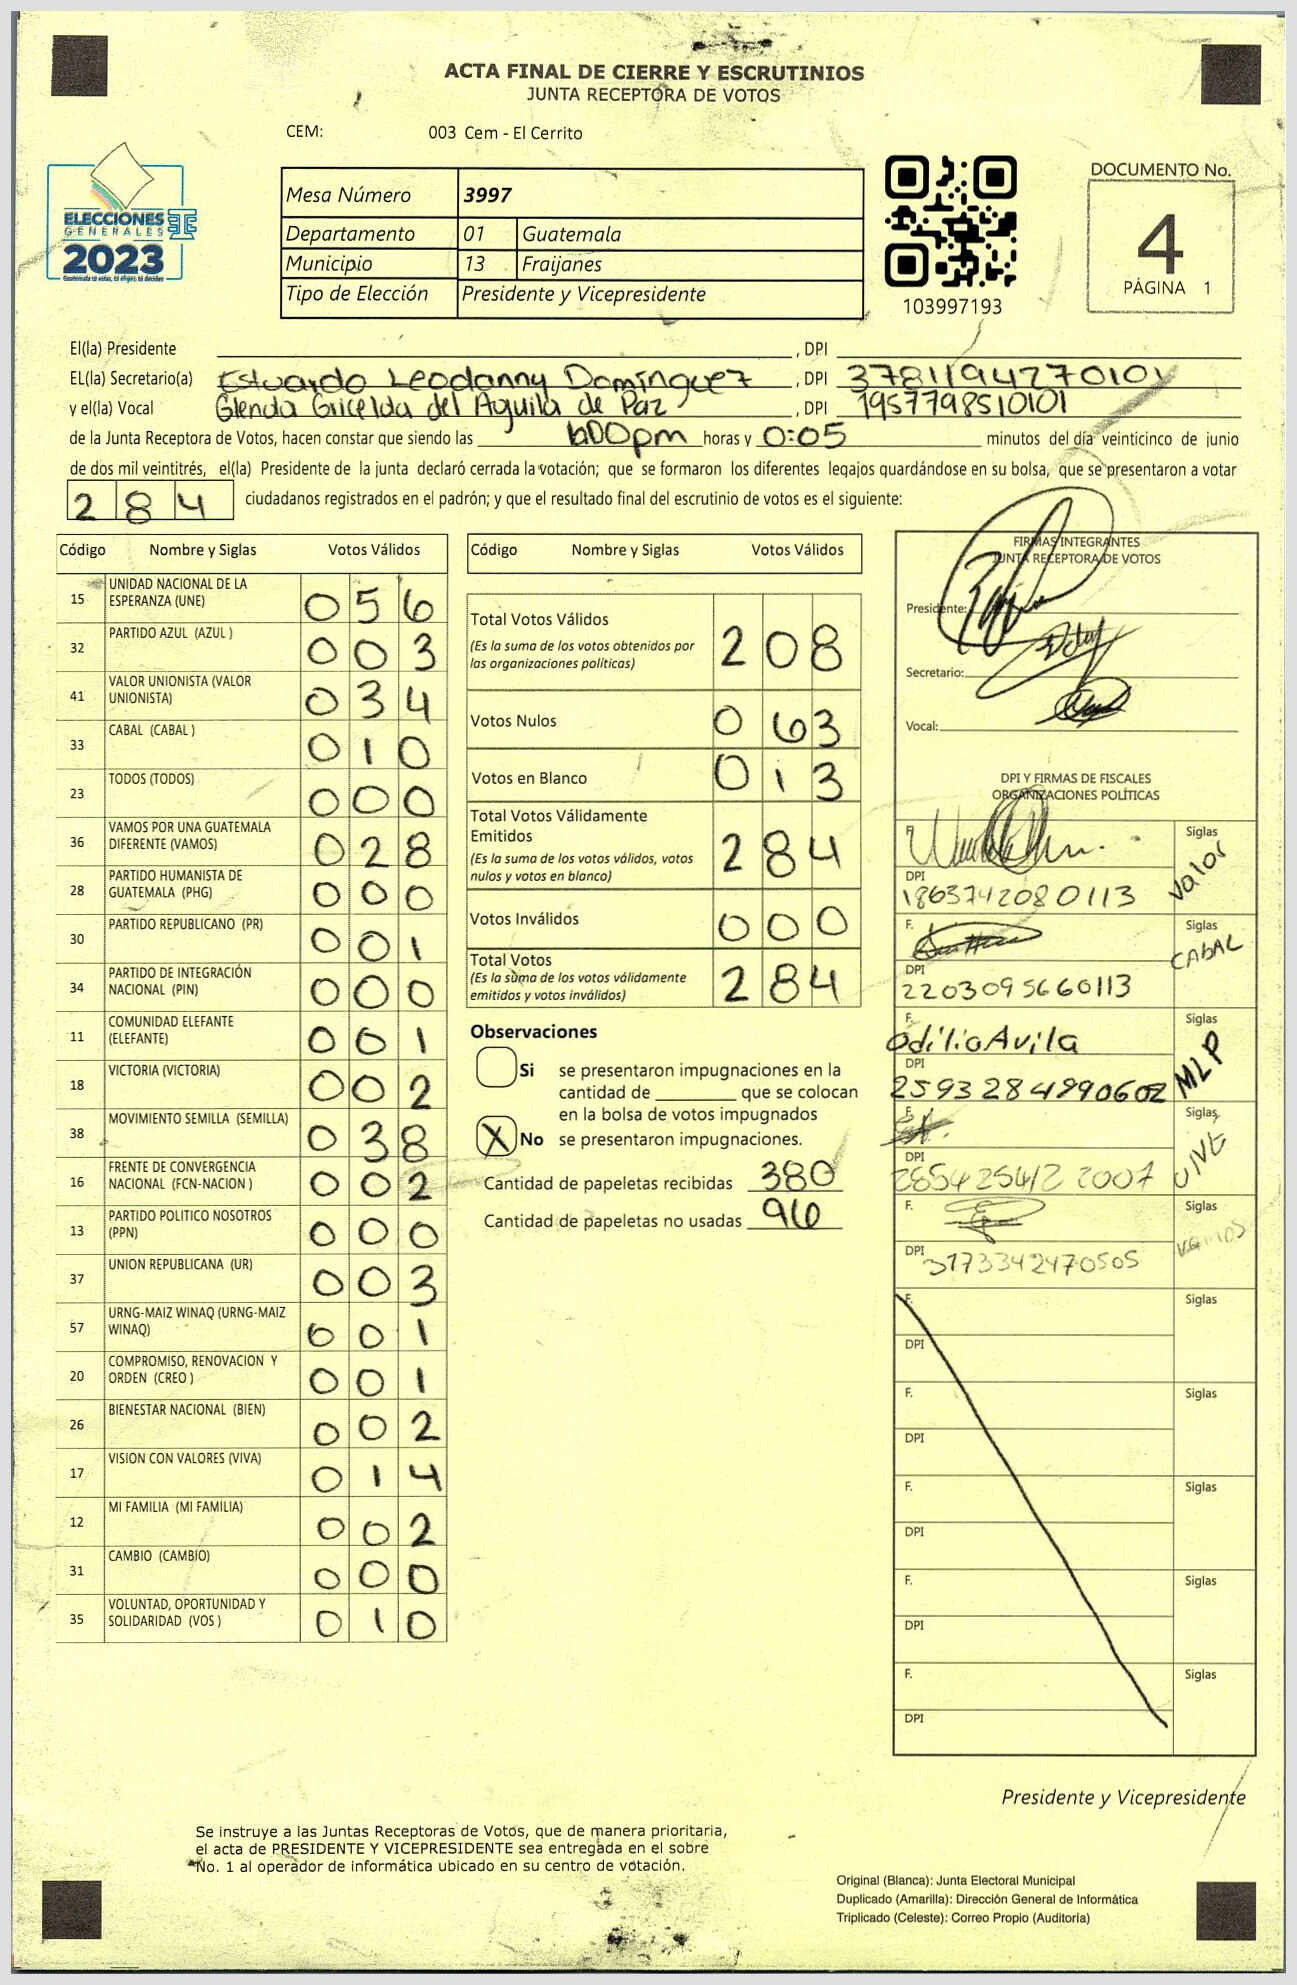 ACTA FINAL DE CIERRE Y ESCRUTINIOS
JUNTA RECEPTORA DE VOTOS
CEM: 003 Cem - El Cerrito
ELECCIONES
GENERALES
2023
Guatemala tú votas, tú eliges, tú decides
Mesa Número 3997
Departamento 01 Guatemala
Municipio 13 Fraijanes
Tipo de Elección Presidente y Vicepresidente
103997193
DOCUMENTO No.
4
PÁGINA 1
El(la) Presidente , DPI
EL(la) Secretario(a) Estuardo Leodanny Domínguez , DPI 3781194270101
y el(la) Vocal Glenda Gricelda del Aguila de Paz , DPI 1957798510101
de la Junta Receptora de Votos, hacen constar que siendo las 6:00pm horas y 0:05 minutos del día veinticinco de junio
de dos mil veintitrés, el(la) Presidente de la junta declaró cerrada la votación; que se formaron los diferentes legajos guardándose en su bolsa, que se presentaron a votar
284 ciudadanos registrados en el padrón; y que el resultado final del escrutinio de votos es el siguiente:
Código Nombre y Siglas Votos Válidos
15 UNIDAD NACIONAL DE LA ESPERANZA (UNE) 056
32 PARTIDO AZUL (AZUL ) 003
41 VALOR UNIONISTA (VALOR UNIONISTA) 034
33 CABAL (CABAL ) 010
23 TODOS (TODOS) 000
36 VAMOS POR UNA GUATEMALA DIFERENTE (VAMOS) 028
28 PARTIDO HUMANISTA DE GUATEMALA (PHG) 000
30 PARTIDO REPUBLICANO (PR) 001
34 PARTIDO DE INTEGRACIÓN NACIONAL (PIN) 000
11 COMUNIDAD ELEFANTE (ELEFANTE) 001
18 VICTORIA (VICTORIA) 002
38 MOVIMIENTO SEMILLA (SEMILLA) 038
16 FRENTE DE CONVERGENCIA NACIONAL (FCN-NACION ) 002
13 PARTIDO POLITICO NOSOTROS (PPN) 000
37 UNION REPUBLICANA (UR) 003
57 URNG-MAIZ WINAQ (URNG-MAIZ WINAQ) 001
20 COMPROMISO, RENOVACION Y ORDEN (CREO ) 001
26 BIENESTAR NACIONAL (BIEN) 002
17 VISION CON VALORES (VIVA) 014
12 MI FAMILIA (MI FAMILIA) 002
31 CAMBIO (CAMBIO) 000
35 VOLUNTAD, OPORTUNIDAD Y SOLIDARIDAD (VOS ) 010
Código Nombre y Siglas Votos Válidos
Total Votos Válidos 208
(Es la suma de los votos obtenidos por
las organizaciones políticas)
Votos Nulos 063
Votos en Blanco 013
Total Votos Válidamente
Emitidos 284
(Es la suma de los votos válidos, votos
nulos y votos en blanco)
Votos Inválidos 000
Total Votos 284
(Es la suma de los votos válidamente
emitidos y votos inválidos)
Observaciones
Si se presentaron impugnaciones en la
cantidad de ________ que se colocan
en la bolsa de votos impugnados
X No se presentaron impugnaciones.
Cantidad de papeletas recibidas 380
Cantidad de papeletas no usadas 96
FIRMAS INTEGRANTES
JUNTA RECEPTORA DE VOTOS
Presidente:
Secretario:
Vocal:
DPI Y FIRMAS DE FISCALES
ORGANIZACIONES POLÍTICAS
F. Siglas Valor
DPI 1863742080113
F. Siglas CABAL
DPI 2203095660113
F. Odilio Avila Siglas MLP
DPI 2593284890602
F. Siglas VIVE
DPI 285425412 2007
F. Siglas Vamos
DPI 3173342470505
F. Siglas
DPI
F. Siglas
DPI
F. Siglas
DPI
F. Siglas
DPI
F. Siglas
DPI
Presidente y Vicepresidente
Se instruye a las Juntas Receptoras de Votos, que de manera prioritaria,
el acta de PRESIDENTE Y VICEPRESIDENTE sea entregada en el sobre
No. 1 al operador de informática ubicado en su centro de votación.
Original (Blanca): Junta Electoral Municipal
Duplicado (Amarilla): Dirección General de Informática
Triplicado (Celeste): Correo Propio (Auditoría)